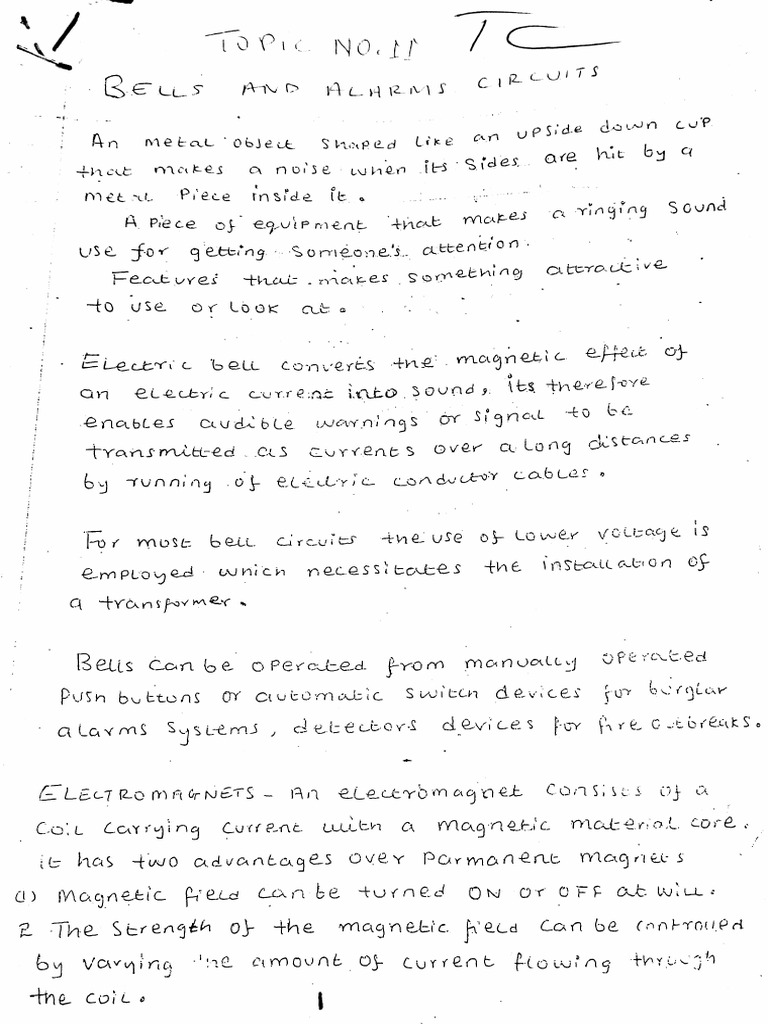 TOPIC NO.11 TC
BELLS AND ALARMS CIRCUITS
An metal object shaped like an upside down cup
that makes a noise when its sides are hit by a
metal Piece inside it.
A Piece of equipment that makes a ringing sound
use for getting someone's attention.
Features that makes something attractive
to use or look at.
Electric bell converts the magnetic effect of
an electric current into sound, its therefore
enables audible warnings or signal to be
transmitted as currents over a long distances
by running of electric conductor cables.
For most bell circuits the use of lower voltage is
employed which necessitates the installation of
a transformer.
Bells can be operated from manually operated
Push buttons or automatic switch devices for burglar
alarms systems, detectors devices for fire outbreaks.
ELECTROMAGNETS - An electromagnet consists of a
coil carrying current with a magnetic material core.
it has two advantages over parmanent magnets
(1) Magnetic field can be turned ON or OFF at will.
2 The strength of the magnetic field can be controlled
by varying the amount of current flowing through
the coil.
1